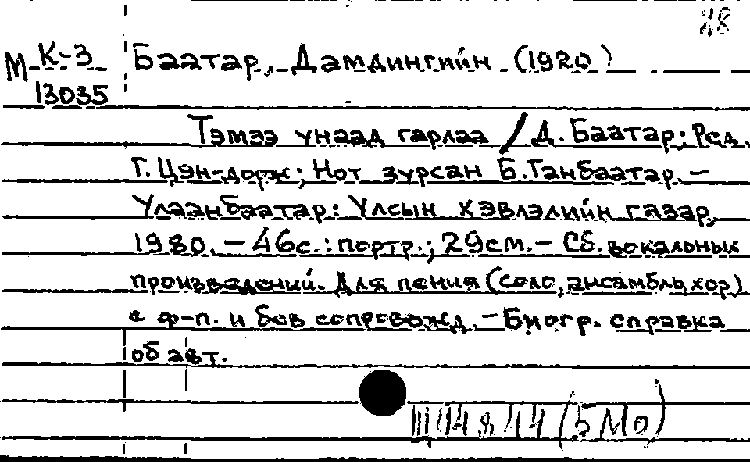 78
М К-3 Баатар, Дамдингийн (1920)
13035
Тэмээ унаад гарлаа / Д. Баатар; Ред.
Г. Цэн-дорж; Нот зурсан Б. Ганбаатар. –
Улаанбаатар: Улсын хэвлэлийн газар,
1980. – 46с.: портр.; 29см. – Сб. вокальных
произведений. Для пения (соло, ансамбль, хор)
с ф-п. и без сопровожд. – Биогр. справка
об авт.
Щ 14 8 44 (5 Мо)